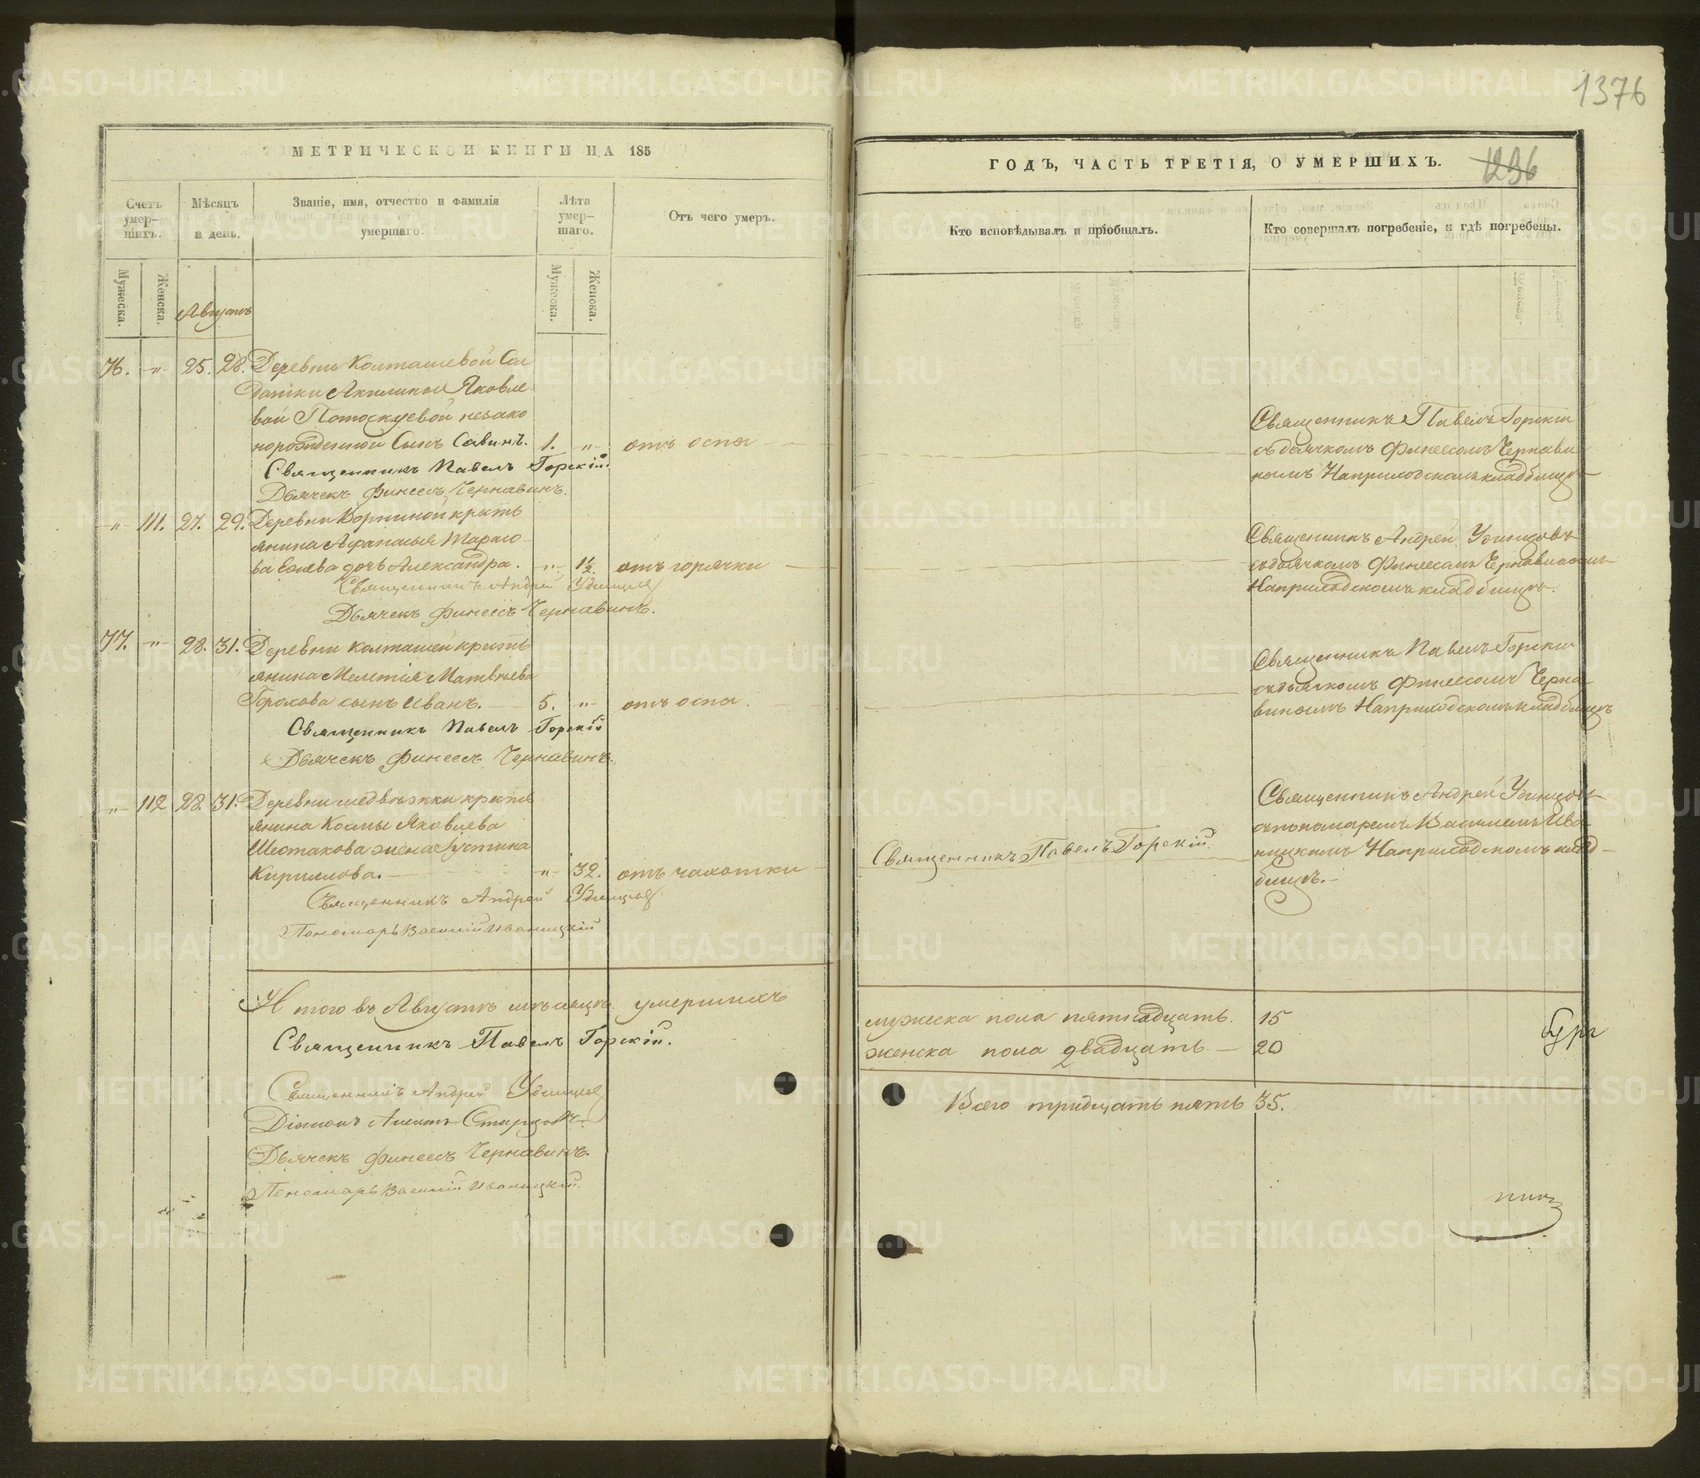 1376
МЕТРИЧЕСКОЙ КНИГИ НА 185
Счетъ умер-шихъ.
Мѣсяцъ и день.
Званіе, имя, отчество и фамилія умершаго.
Лѣта умер-шаго.
Отъ чего умеръ.
Мужеска.
Женска.
Мужеска.
Женска.
Августъ
76. -„- 25. 28. Деревни Колташевой Сол
датки Акилины Яковле
вой Потоскуевой незако
норожденной Сынъ Савинъ. 1. -„- отъ оспы
Священникъ Павелъ Горскій.
Дьячекъ Финеесъ Чернавинъ.
-„- 111. 27. 29. Деревни крестъ
янина Афанасья Тарасо
ва дочь Александра. -„- 1½. отъ горячки
Священникъ Андрей Удинцев
Дьячекъ Финеесъ Чернавинъ.
77. -„- 28. 31. Деревни Колташей крестъ
янина Мелетія Матвѣева
Горохова сынъ Иванъ. 5. -„- отъ оспы.
Священникъ Павелъ Горскій
Дьячекъ Финеесъ Чернавинъ.
-„- 112 28. 31. Деревни крестъ
янина Козмы Яковлева
Шестакова жена Іустина
Кириллова. -„- 32. отъ чахотки
Священникъ Андрей Удинцев
Пономарь Василій Иваницкій
Итого въ Августѣ мѣсяцѣ умершихъ
Священникъ Павелъ Горскій.
Священникъ Андрей Удинцев
Діаконъ Старцовъ.
Дьячекъ Финеесъ Чернавинъ.
Пономарь Василій Иваницкій.
ГОДЪ, ЧАСТЬ ТРЕТІЯ, О УМЕРШИХЪ.
1236
Кто исповѣдывалъ и пріобщалъ.
Кто совершалъ погребеніе, и гдѣ погребены.
Священникъ Павелъ Горскій
съ дьячкомъ Финеесомъ Чернави
нымъ На приходскомъ кладбищѣ
Священникъ Андрей Удинцовъ
съ дьячкомъ Финеесомъ Чернавинымъ
На приходскомъ кладбищѣ.
Священникъ Павелъ Горскій
съ дьячкомъ Финеесомъ Черна
винымъ На приходскомъ кладбищѣ
Священникъ Павелъ Горскій.
Священникъ Андрей Удинцовъ
съ пономаремъ Василіемъ Ива
ницкимъ На приходскомъ клад-
бищѣ.
мужеска пола пятнадцать. 15
женска пола двадцать 20
Всего тридцать пять 35.
METRIKI.GASO-URAL.RU